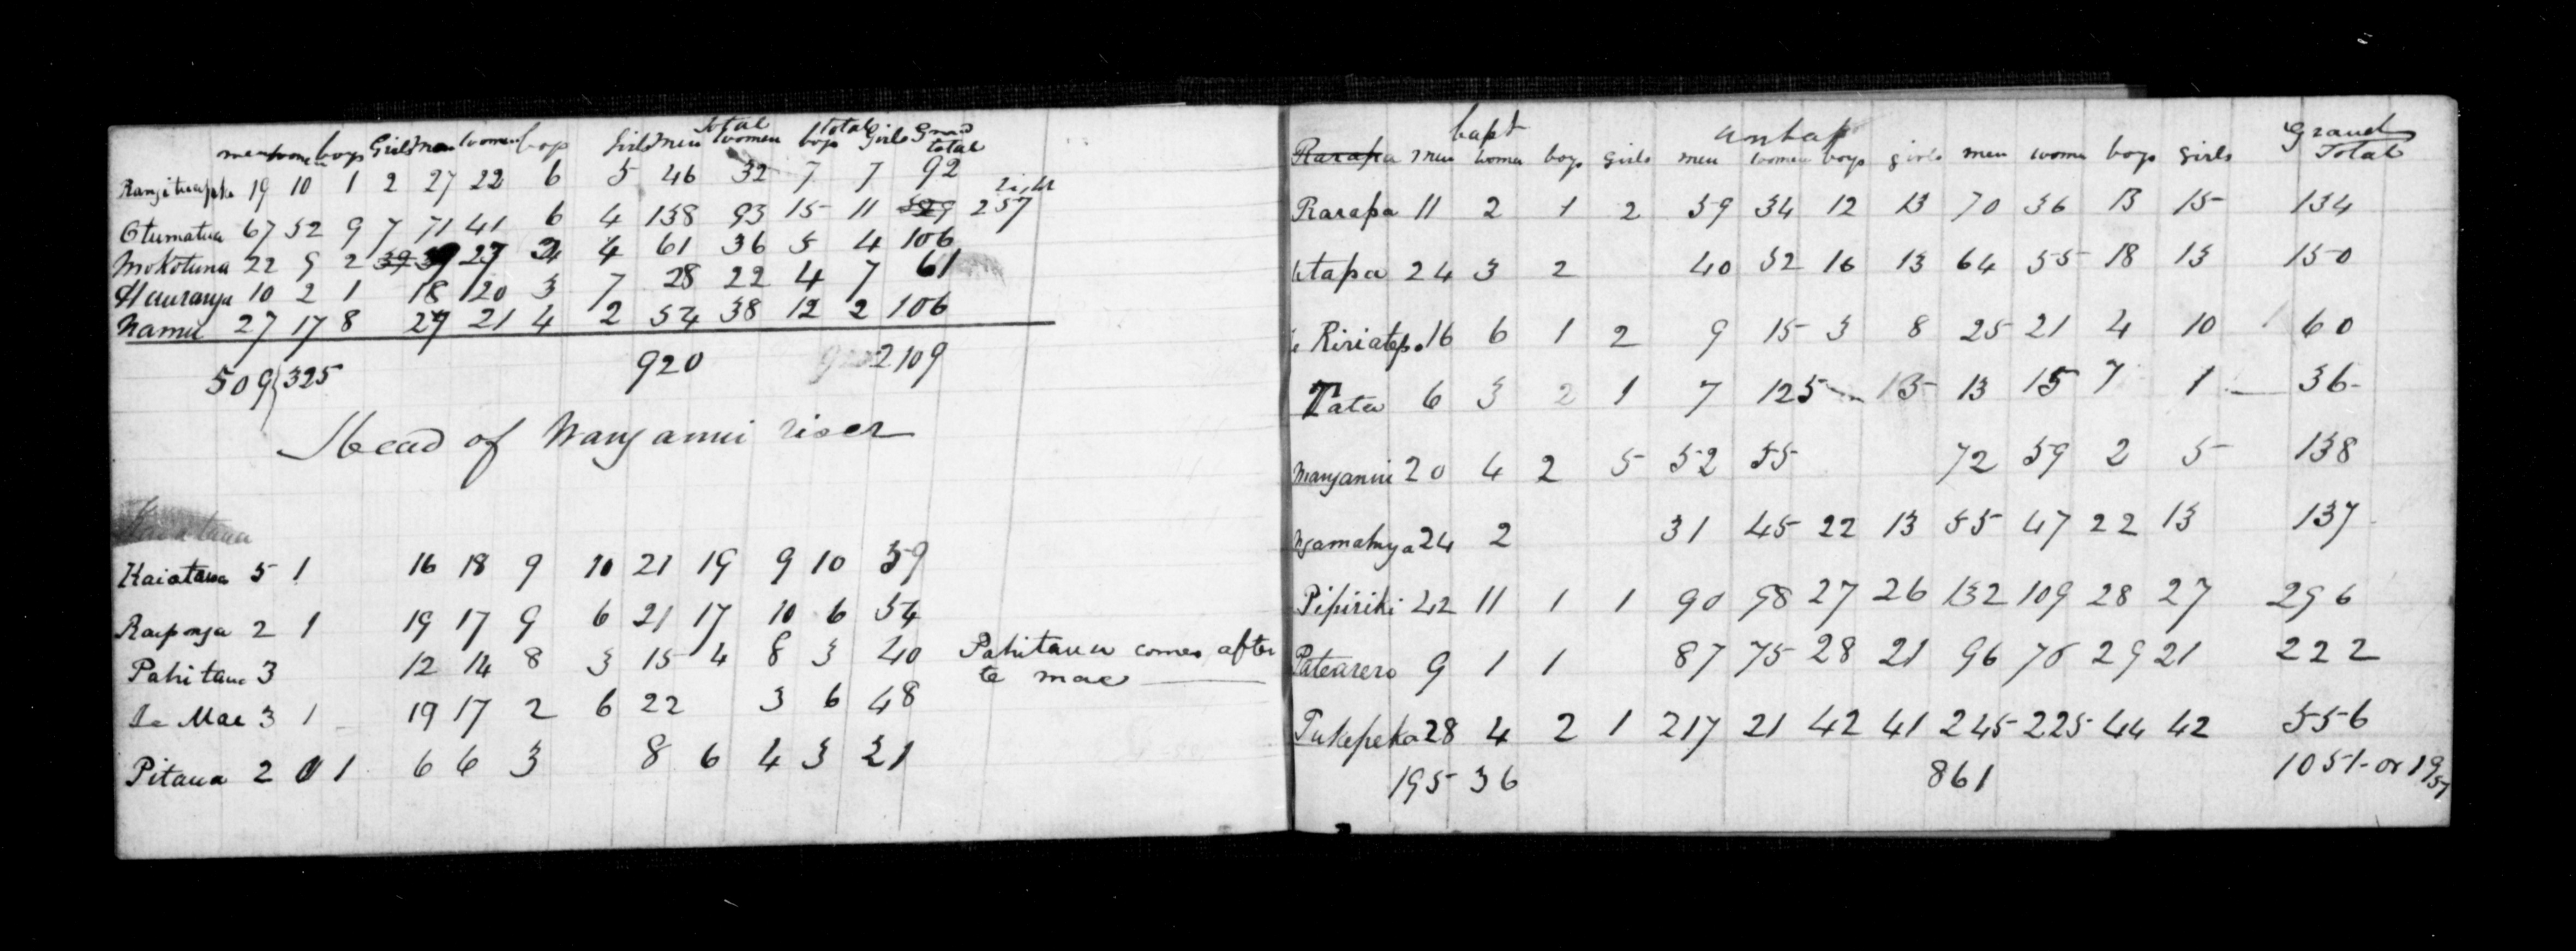 total total Grand
men women boys Girls men women boys Girls men women boys Girls total
19 10 1 2 27 22 6 5 46 32 7 7 92
Otumatua 67 52 9 7 71 41 6 4 138 93 15 11 257
Mokotuna 22 9 2 27 4 61 36 5 4 106
Hauranga 10 2 1 18 20 3 7 28 22 4 7 61
Namu 27 17 8 27 21 4 2 54 38 12 2 106
509 325 920 2109
Head of Wanganui river
Kaiatawa 5 1 16 18 9 10 21 19 9 10 59
Raiponga 2 1 19 17 9 6 21 17 10 6 54
Pahitaua 3 12 14 8 3 15 4 8 3 40 Pahitaua comes after
te mae
Te Mae 3 1 19 17 2 6 22 3 6 48
Pitaua 2 1 6 6 3 8 6 4 3 21
bapt unbap Grand
Rarapa men women boys girls men women boys girls men women boys girls Total
Rarapa 11 2 1 2 59 34 12 13 70 36 13 15 134
Utapu 24 3 2 40 52 16 13 64 55 18 13 150
Ririatepo 16 6 1 2 9 15 3 8 25 21 4 10 60
Tata 6 3 2 1 7 12 5 13 15 7 1 36
Manganui 20 4 2 5 52 55 72 59 2 5 138
24 2 31 45 22 13 55 47 22 13 137
Pipiriki 42 11 1 1 90 98 27 26 132 109 28 27 296
Patearero 9 1 1 87 75 28 21 96 76 29 21 222
Pukepeka 28 4 2 1 217 21 42 41 245 225 44 42 556
195 36 861 1051 or 1957